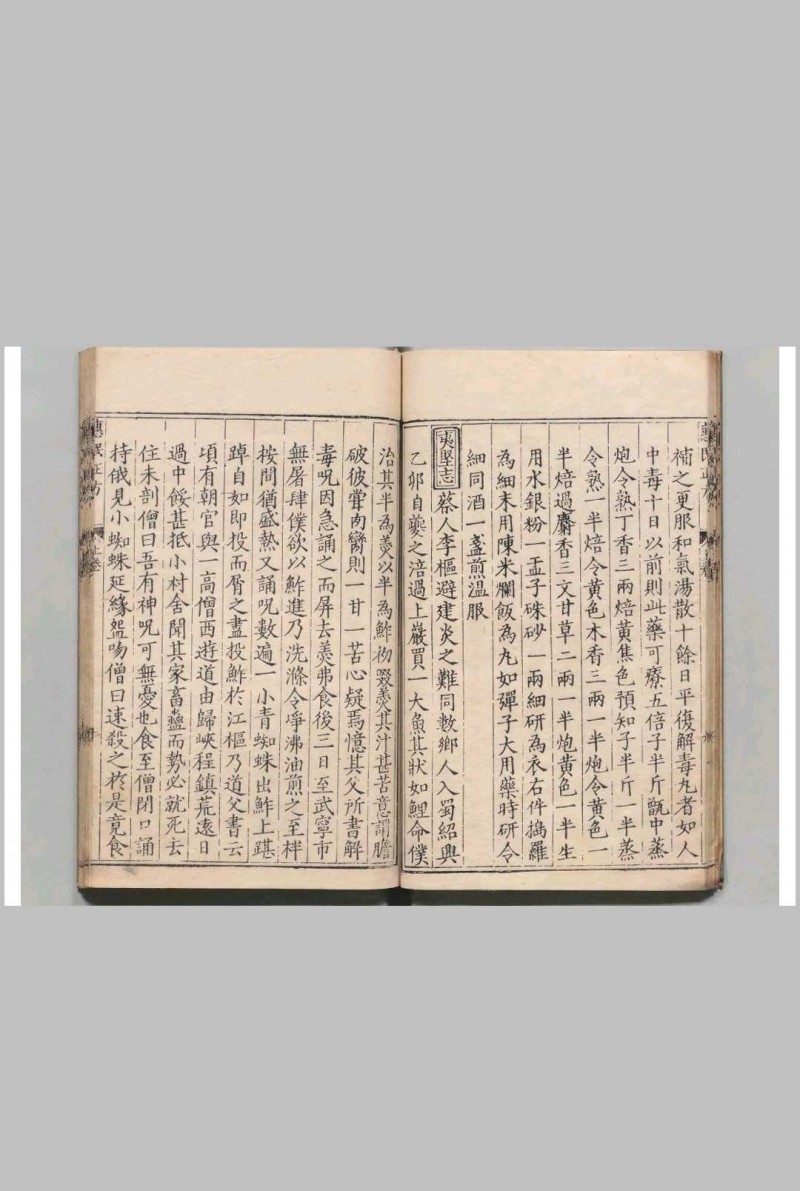 補之更服和氣湯散十餘日平復解毒丸者如人
中毒十日以前則此藥可療五倍子半斤甑中蒸
炮令熟丁香三兩焙黃焦色預知子半斤一半蒸
令熟一半焙令黃色木香三兩一半炮令黃色一
半焙過麝香三文甘草二兩一半炮黃色一半生
用水銀粉一盃子硃砂一兩細研為衣右件搗羅
為細末用陳米爛飯為丸如彈子大用藥時研令
細同酒一盞煎溫服
夷堅志 蔡人李樞避建炎之難同數鄉人入蜀紹興
乙卯自夔之涪過上巖買一大魚其狀如鯉命僕
治其半為羹以半為鮓初啜羹其汁甚苦意謂膽
破彼嘗肉臠則一甘一苦心疑焉憶其父所書解
毒呪因急誦之而屏去羹弗食後三日至武寧市
無屠肆僕欲以鮓進乃洗滌令淨沸油煎之至柈
按間猶盛熱又誦呪數遍一小青蜘蛛出鮓上踸
踔自如即投而屑之盡投鮓於江樞乃道父書云
頃有朝官與一高僧西遊道由歸峽程鎮荒遠日
過中餒甚抵小村舍聞其家畜蠱而勢必就死去
住未剖僧曰吾有神呪可無憂也食至僧閉口誦
持俄見小蜘蛛延緣盌吻僧曰速殺之於是竟食
惠民正方